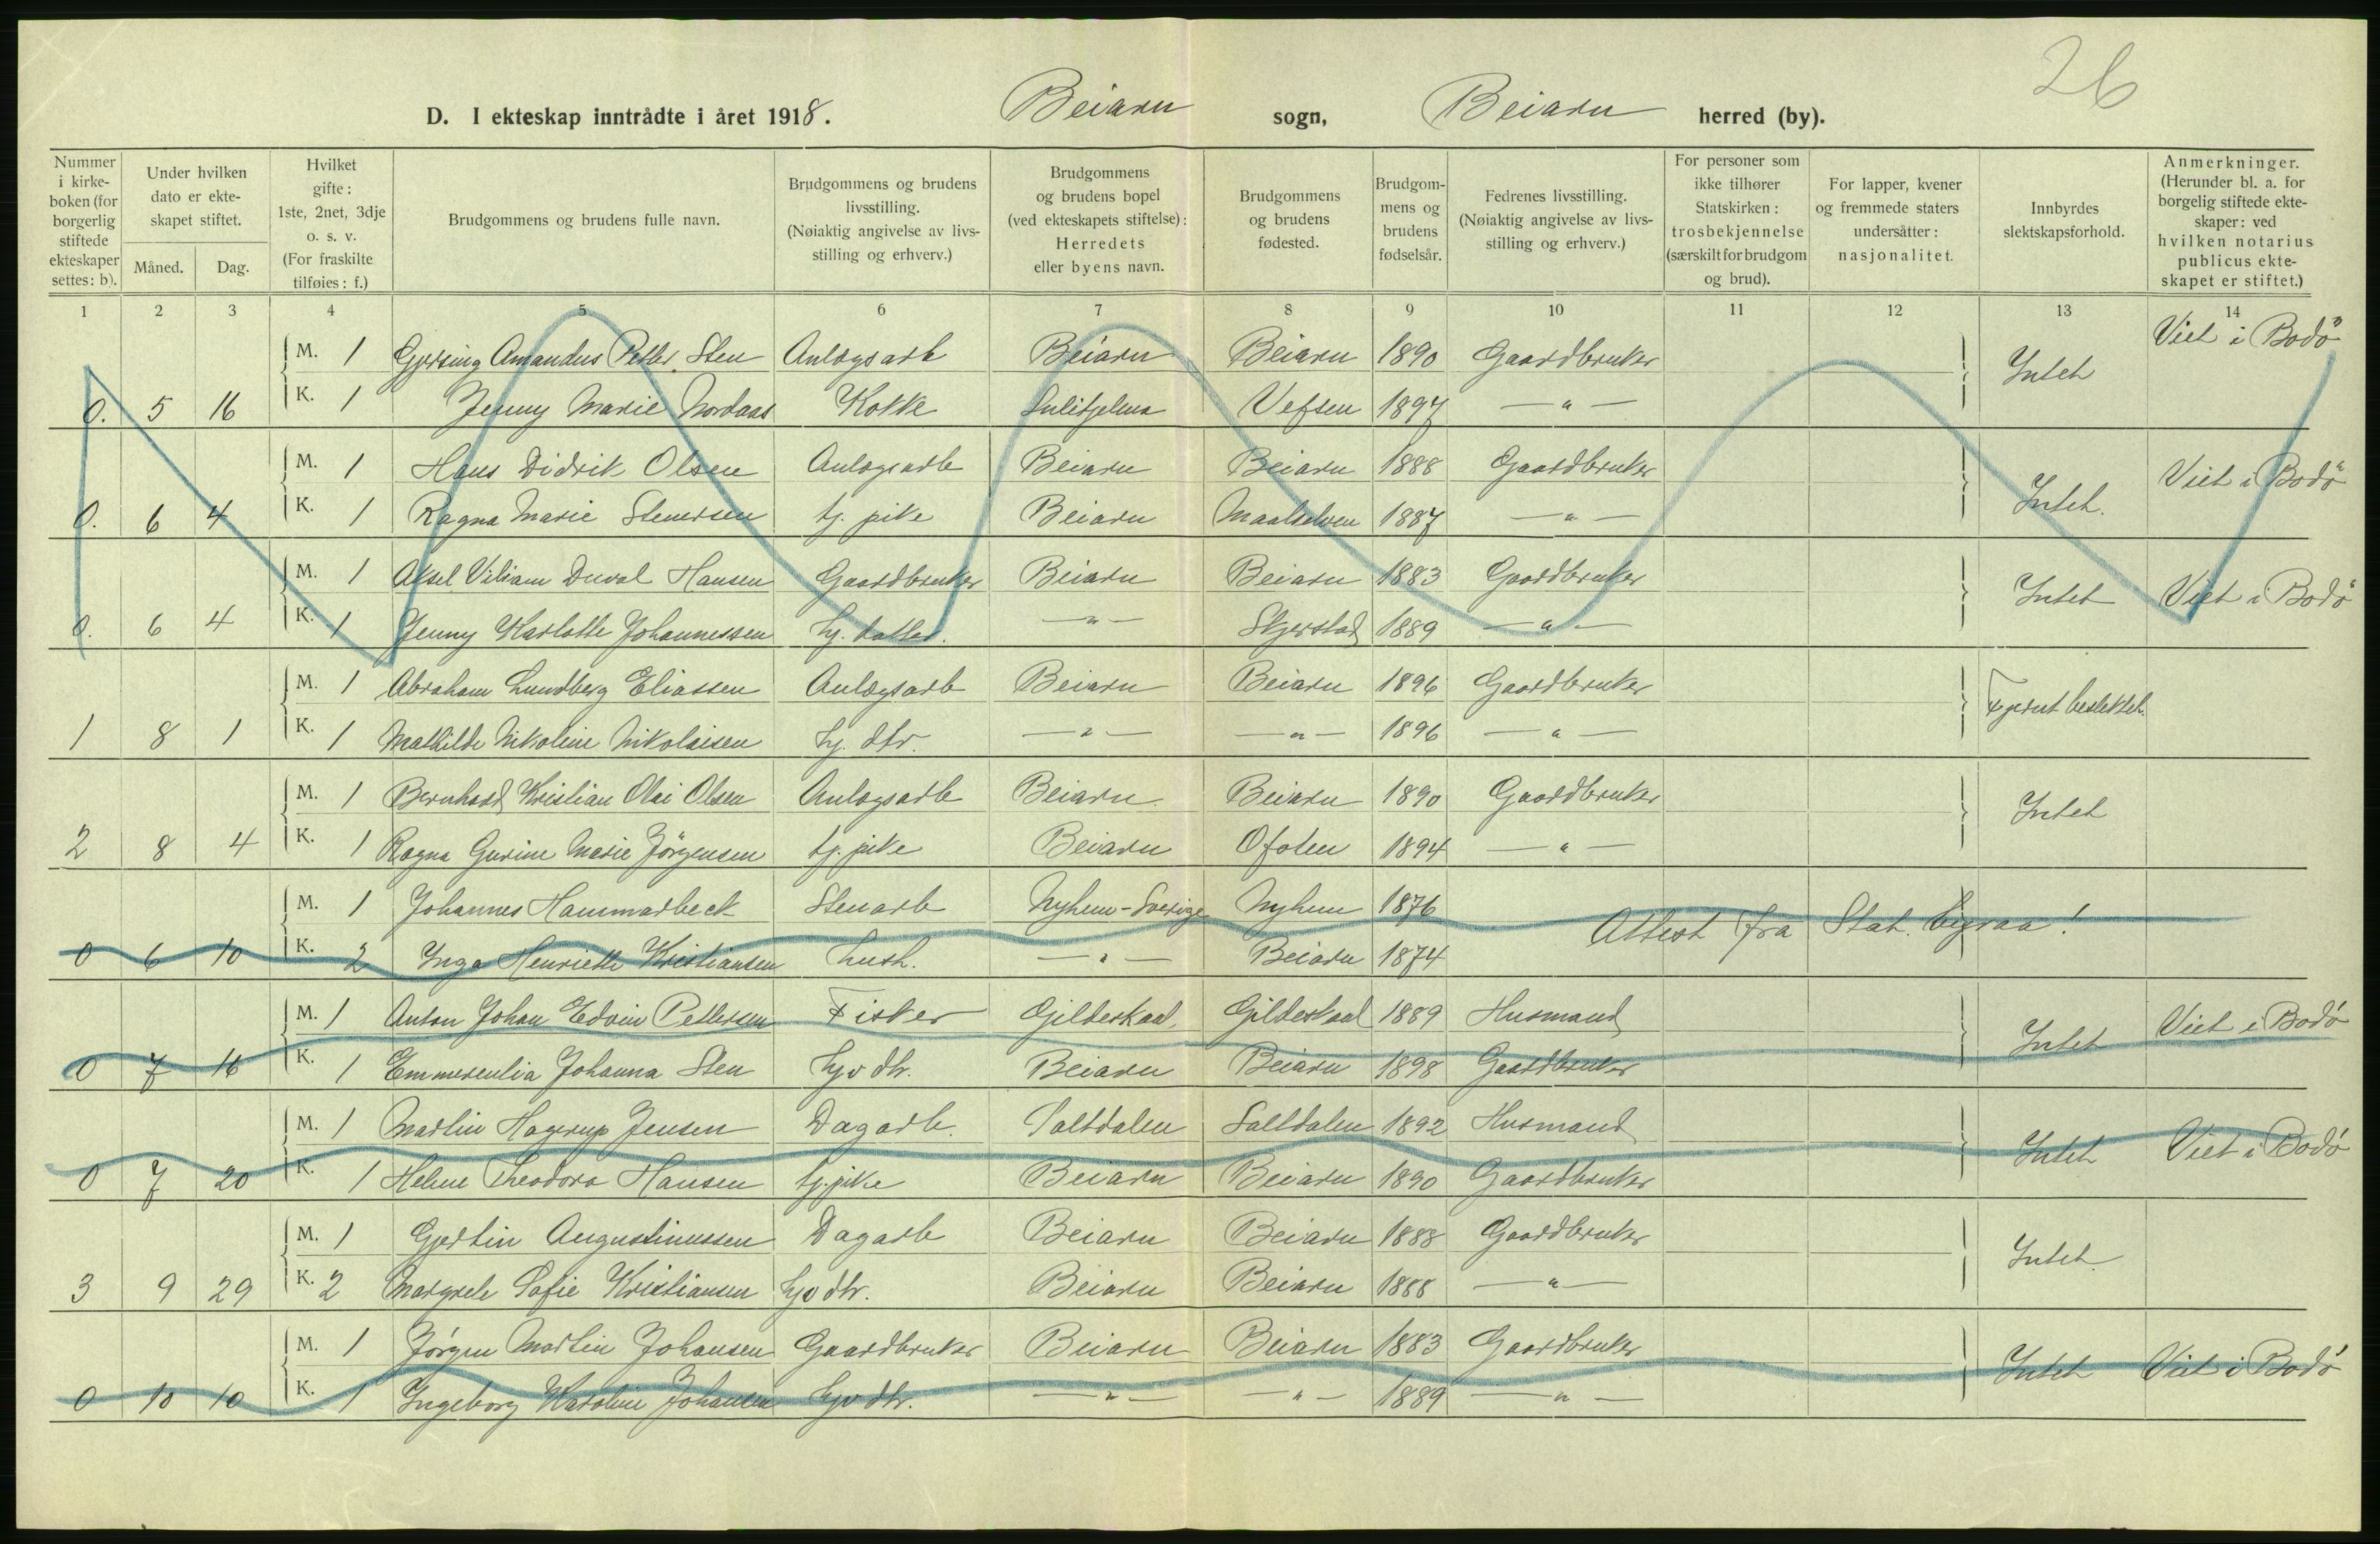 26
D. I ekteskap inntrådte i året 1918. Beiarn sogn, Beiarn herred (by).
Nummer i kirkeboken (for borgerlig stiftede ekteskaper settes: b).
Under hvilken dato er ekteskapet stiftet.
Måned. Dag.
Hvilket gifte: 1ste, 2net, 3dje o. s. v. (For fraskilte tilføies: f.)
Brudgommens og brudens fulle navn.
Brudgommens og brudens livsstilling. (Nøiaktig angivelse av livsstilling og erhverv.)
Brudgommens og brudens bopel (ved ekteskapets stiftelse): Herredets eller byens navn.
Brudgommens og brudens fødested.
Brudgommens og brudens fødselsår.
Fedrenes livsstilling. (Nøiaktig angivelse av livsstilling og erhverv.)
For personer som ikke tilhører Statskirken: trosbekjennelse (særskilt for brudgom og brud).
For lapper, kvener og fremmede staters undersåtter: nasjonalitet.
Innbyrdes slektskapsforhold.
Anmerkninger. (Herunder bl. a. for borgelig stiftede ekteskaper: ved hvilken notarius publicus ekteskapet er stiftet.)
1 2 3 4 5 6 7 8 9 10 11 12 13 14
M. 1 Amandus Petter Sten Anlægsarb Beiarn Beiarn 1890 Gaardbruker Intet Viet i Bodö
0. 5 16 K. 1 Jenny Marie Nordaas Kokke Sulitjelma Vefsen 1897 — " —
M. 1 Hans Didrik Olsen Anlægsarb Beiarn Beiarn 1888 Gaardbruker Intet. Viet i Bodö
0. 6 4 K. 1 Ragna Marie Stenersen tj. pike Beiarn Maalselven 1887 — " —
M. 1 Aksel Viliam Duval Hansen Gaardbruker Beiarn Beiarn 1883 Gaardbruker Intet Viet i Bodö
0. 6 4 K. 1 Jenny Karlotte Johannessen — " — Skjerstad 1889 — " —
M. 1 Abraham Lundberg Eliassen Anlægsarb Beiarn Beiarn 1896 Gaardbruker Fjernt beslektet.
1 8 1 K. 1 Mathilde Nikoline Nikolaisen hj. dtr. — " — — " — 1896 — " —
M. 1 Bernhard Kristian Olai Olsen Anlægsarb Beiarn Beiarn 1890 Gaardbruker Intet
2 8 4 K. 1 Ragna Gurine Marie Jörgensen tj. pike Beiarn Ofoten 1894 — " —
M. 1 Johannes Hammarbeck Stenarb Nyhem-Sverige Nyhem 1876 Attest fra Stat. byraa!
0 6 10 K. 2 Inga Henriette Kristiansen hush. — " — Beiarn 1874
M. 1 Anton Johan Edvin Pettersen Fisker Gildeskaal Gildeskaal 1889 Husmand Intet Viet i Bodö
0 7 16 K. 1 Emmerentia Johanna Sten hjv dtr. Beiarn Beiarn 1898 Gaardbruker
M. 1 Martin Hagerup Jensen Dagarb. Saltdalen Saltdalen 1892 Husmand Intet Viet i Bodö
0 7 20 K. 1 Helene Theodora Hansen tj. pike Beiarn Beiarn 1890 Gaardbruker
M. 1 Gjertin Augustinussen Dagarb Beiarn Beiarn 1888 Gaardbruker Intet.
3 9 29 K. 2 Margrete Sofie Kristiansen hjv dtr. Beiarn Beiarn 1888 — " —
M. 1 Jörgen Martin Johansen Gaardbruker Beiarn Beiarn 1883 Gaardbruker Intet Viet i Bodö
0 10 10 K. 1 Ingeborg Karoline Johansen hjv dtr. — " — — " — 1889 — " —